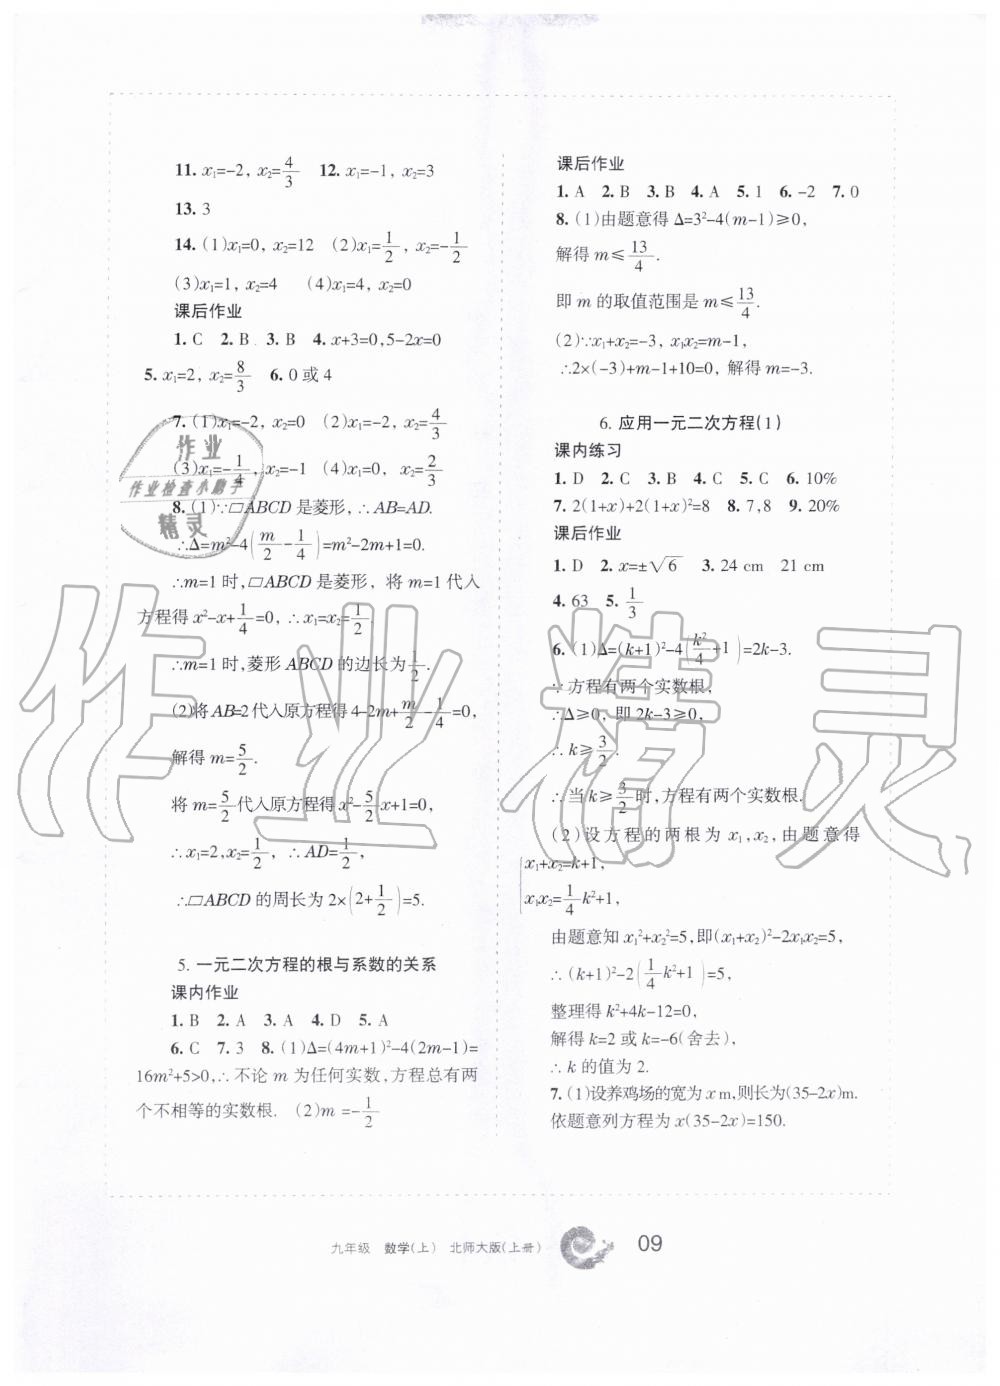 11. x₁=-2, x₂=4/3  12. x₁=-1, x₂=3
13. 3
14. (1)x₁=0, x₂=12  (2)x₁=1/2, x₂=-1/2
(3)x₁=1, x₂=4  (4)x₁=4, x₂=0
课后作业
1. C  2. B  3. B  4. x+3=0,5-2x=0
5. x₁=2, x₂=8/3  6. 0或4
7. (1)x₁=-2, x₂=0  (2)x₁=-2, x₂=4/3
(3)x₁=-1/4, x₂=-1  (4)x₁=0, x₂=2/3
8. (1)∵▱ABCD是菱形,∴AB=AD.
∴Δ=m²-4(m/2-1/4)=m²-2m+1=0.
∴m=1时,▱ABCD是菱形, 将m=1代入
方程得x²-x+1/4=0, ∴x₁=x₂=1/2.
∴m=1时,菱形ABCD的边长为1/2.
(2)将AB=2代入原方程得4-2m+m/2-1/4=0,
解得m=5/2.
将m=5/2代入原方程得x²-5/2x+1=0,
∴x₁=2,x₂=1/2, ∴AD=1/2,
∴▱ABCD的周长为2×(2+1/2)=5.
5. 一元二次方程的根与系数的关系
课内作业
1. B  2. A  3. A  4. D  5. A
6. C  7. 3  8. (1)Δ=(4m+1)²-4(2m-1)=
16m²+5>0,∴不论m为任何实数,方程总有两
个不相等的实数根. (2)m=-1/2
课后作业
1. A  2. B  3. B  4. A  5. 1  6. -2  7. 0
8. (1)由题意得Δ=3²-4(m-1)≥0,
解得m≤13/4.
即m的取值范围是m≤13/4.
(2)∵x₁+x₂=-3, x₁x₂=m-1,
∴2×(-3)+m-1+10=0, 解得m=-3.
6. 应用一元二次方程(1)
课内练习
1. D  2. C  3. B  4. C  5. C  6. 10%
7. 2(1+x)+2(1+x)²=8  8. 7,8  9. 20%
课后作业
1. D  2. x=±√6  3. 24 cm  21 cm
4. 63  5. 1/3
6. (1)Δ=(k+1)²-4(k²/4+1)=2k-3.
∵方程有两个实数根,
∴Δ≥0, 即2k-3≥0,
∴k≥3/2.
∴当k≥3/2时,方程有两个实数根.
(2)设方程的两根为x₁,x₂,由题意得
x₁+x₂=k+1,
x₁x₂=1/4k²+1,
由题意知x₁²+x₂²=5,即(x₁+x₂)²-2x₁x₂=5,
∴(k+1)²-2(1/4k²+1)=5,
整理得k²+4k-12=0,
解得k=2或k=-6(舍去),
∴k的值为2.
7. (1)设养鸡场的宽为x m,则长为(35-2x)m.
依题意列方程为x(35-2x)=150.
九年级 数学(上) 北师大版(上册) 09
作业
作业检查小助手
精灵
作业精灵